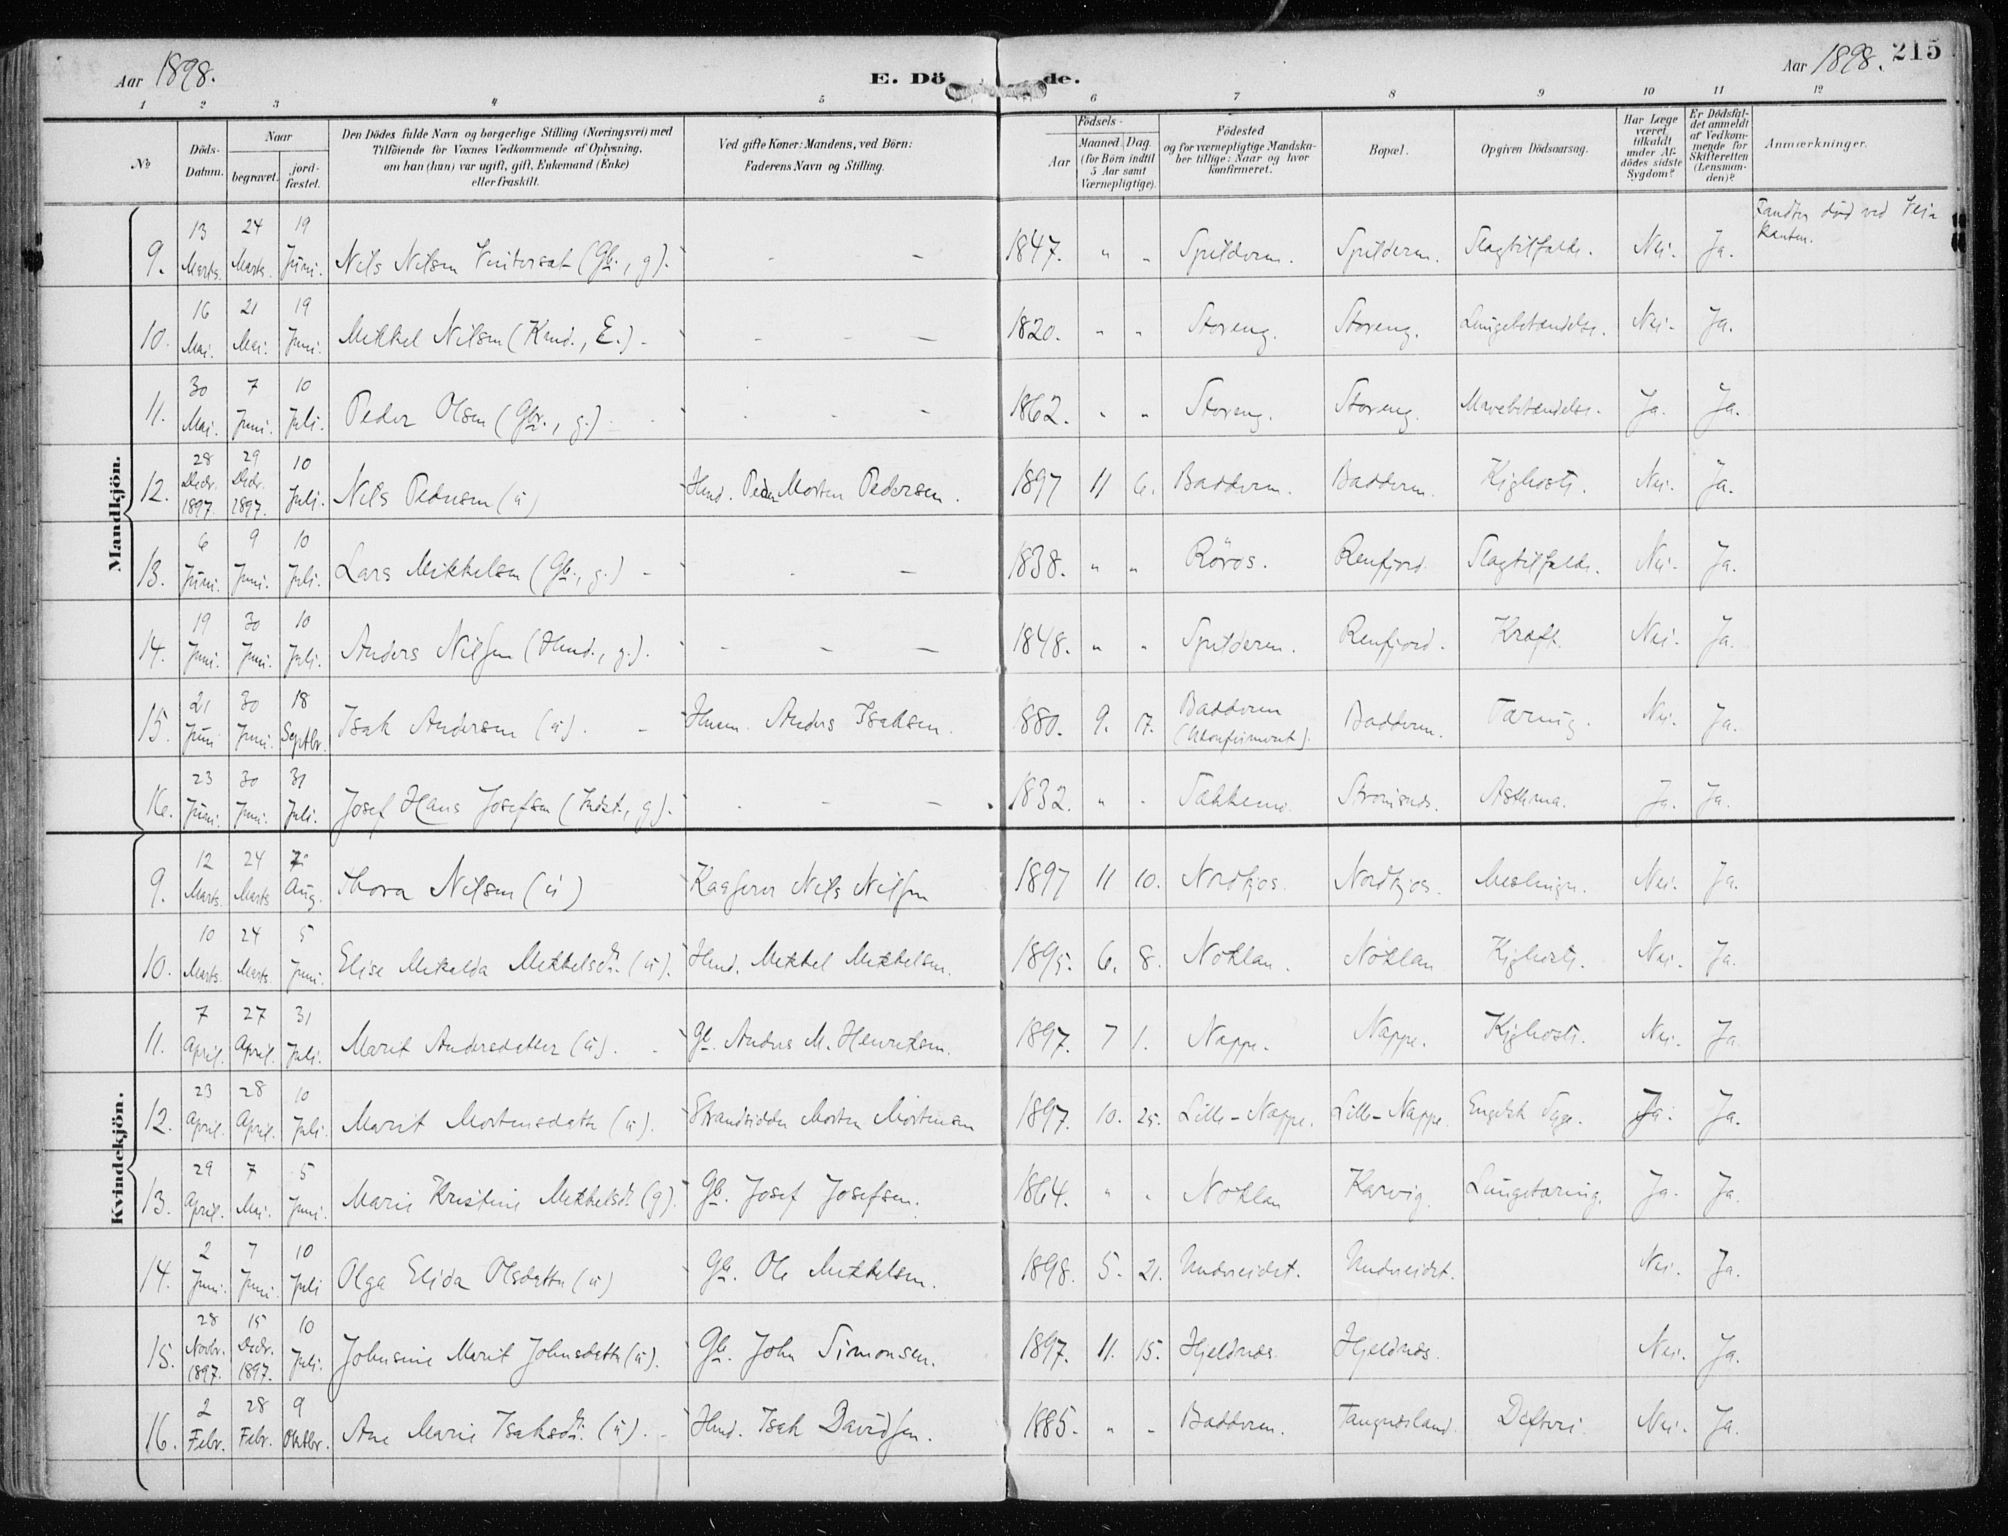 Aar 1898.
E. Dö de.
Aar 1898. 215
1 2 3 4 5 6 7 8 9 10 11 12
No
Döds-Datum.
Naar
begravet.
jordfæstet.
Den Dödes fulde Navn og borgerlige Stilling (Næringsvei) med
Tilföiende for Voxnes Vedkommende af Oplysning,
om han (hun) var ugift, gift, Enkemand (Enke)
eller fraskilt.
Ved gifte Koner: Mandens, ved Börn:
Faderens Navn og Stilling.
Födsels-
Aar
Maaned. Dag.
(for Börn indtil
5 Aar samt
Værnepligtige).
Födested
og for værnepligtige Mandska-
ber tillige: Naar og hvor
konfirmeret.
Bopæl.
Opgiven Dödsaarsag.
Har Læge
været
tilkaldt
under Af-
dödes sidste
Sygdom?
Er Dödsfal-
det anmeldt
af Vedkom-
mende for
Skifteretten
(Lensman-
den)?
Anmærkninger.
Mandkjön.
9. 13 Marts. 24 Marts. 19 Juni. Nils Nilsen (Gbr., g). - - 1847. " " Spilderen. Spilderen. Slagtilfælde. Nei. Ja. død ved Vei-
kanten.
10. 16 Mai. 21 Mai. 19 Juni. Mikkel Nilsen (Kaud., E.). - - - 1820. " " Storeng. Storeng. Lungebetændelse. Nei. Ja.
11. 30 Mai. 7 Juni. 10 Juli. Peder Olsen (Gbr., g.) - - - 1862. " " Storeng. Storeng. Mavebetændelse. Ja. Ja.
12. 28 Decbr. 1897. 29 Decbr. 1897. 10 Juli. Nils Pedersen (u) Hmd. Morten Pedersen. 1897 11 6. Badderen. Badderen. Kighoste. Nei. Ja.
13. 6 Juni. 9 Juni. 10 Juli. Lars Mikkelsen (Gbr., g.) - - - 1838. " " Röros. Renfjord. Slagtilfælde. Nei. Ja.
14. 19 Juni. 30 Juni. 10 Juli. Anders Nilsen (Hmd., g.). - - - 1848. " " Spilderen. Renfjord. Kræft. Nei. Ja.
15. 21 Juni 30 Juni. 18 Septbr. Isak Andersen (u). - Anders Isaksen. 1880. 9. 17. Badderen
(Ukonfirmeret). Badderen. Tæring. Nei. Ja.
16. 23 Juni. 30 Juni. 31 Juli. Josef Hans Josefsen (Indst., g). - - - 1832. " " Strömsnæs. Asthma. Ja. Ja.
Kvindekjön.
9. 12 Marts. 24 Marts 7 Aug. Thora Nilsen (u) Nils Nilsen 1897 11 10. Nordkjos. Nordkjos. Meslinger. Nei. Ja.
10. 10 Marts. 24 Marts. 5 Juni. Elise Mikalda Mikkelsdtr. (u). Hmd. Mikkel Mikkelsen. 1895. 6. 8. Noklan. Noklan Kighoste. Nei. Ja.
11. 7 April. 27 April. 31 Juli. Marit Andersdatter (u). - Gb. Anders M. Henriksen. 1897. 7 1. Nappe. Nappe. Kighoste. Nei. Ja.
12. 23 April. 28 April. 10 Juli. Marit Mortensdatter (u). Strandsidder Morten Mortensen 1897. 10. 25. Lille-Nappe. Lille-Nappe. Engelsk Syge. Ja. Ja.
13. 29 April. 7 Mai. 5 Juni. Marie Kristine Mikkelsdtr. (g). Gb. Josef Josefsen. 1864. " " Noklan Karvig. Lungetæring. Ja. Ja.
14. 2 Juni. 7 Juni. 10 Juli Olga Elida Olsdatter (u) Gb. Ole Mikkelsen. 1898. 5. 21. Undereidet. Undereidet. Nei. Ja.
15. 28 Novbr. 1897. 15 Decbr. 1897. 10 Juli. Johnsine Marit Johnsdatter (u). Gb. John Simonsen. 1897. 11. 15. Hjeldnæs. Hjeldnæs. Nei. Ja.
16. 2 Febr. 28 Febr. 9 Oktbr. Ane Marie Isaksdtr. (u). - Hmd. Isak Davidsen. 1885. " " Badderen. Tangnæsland. Difteri. Nei. Ja.